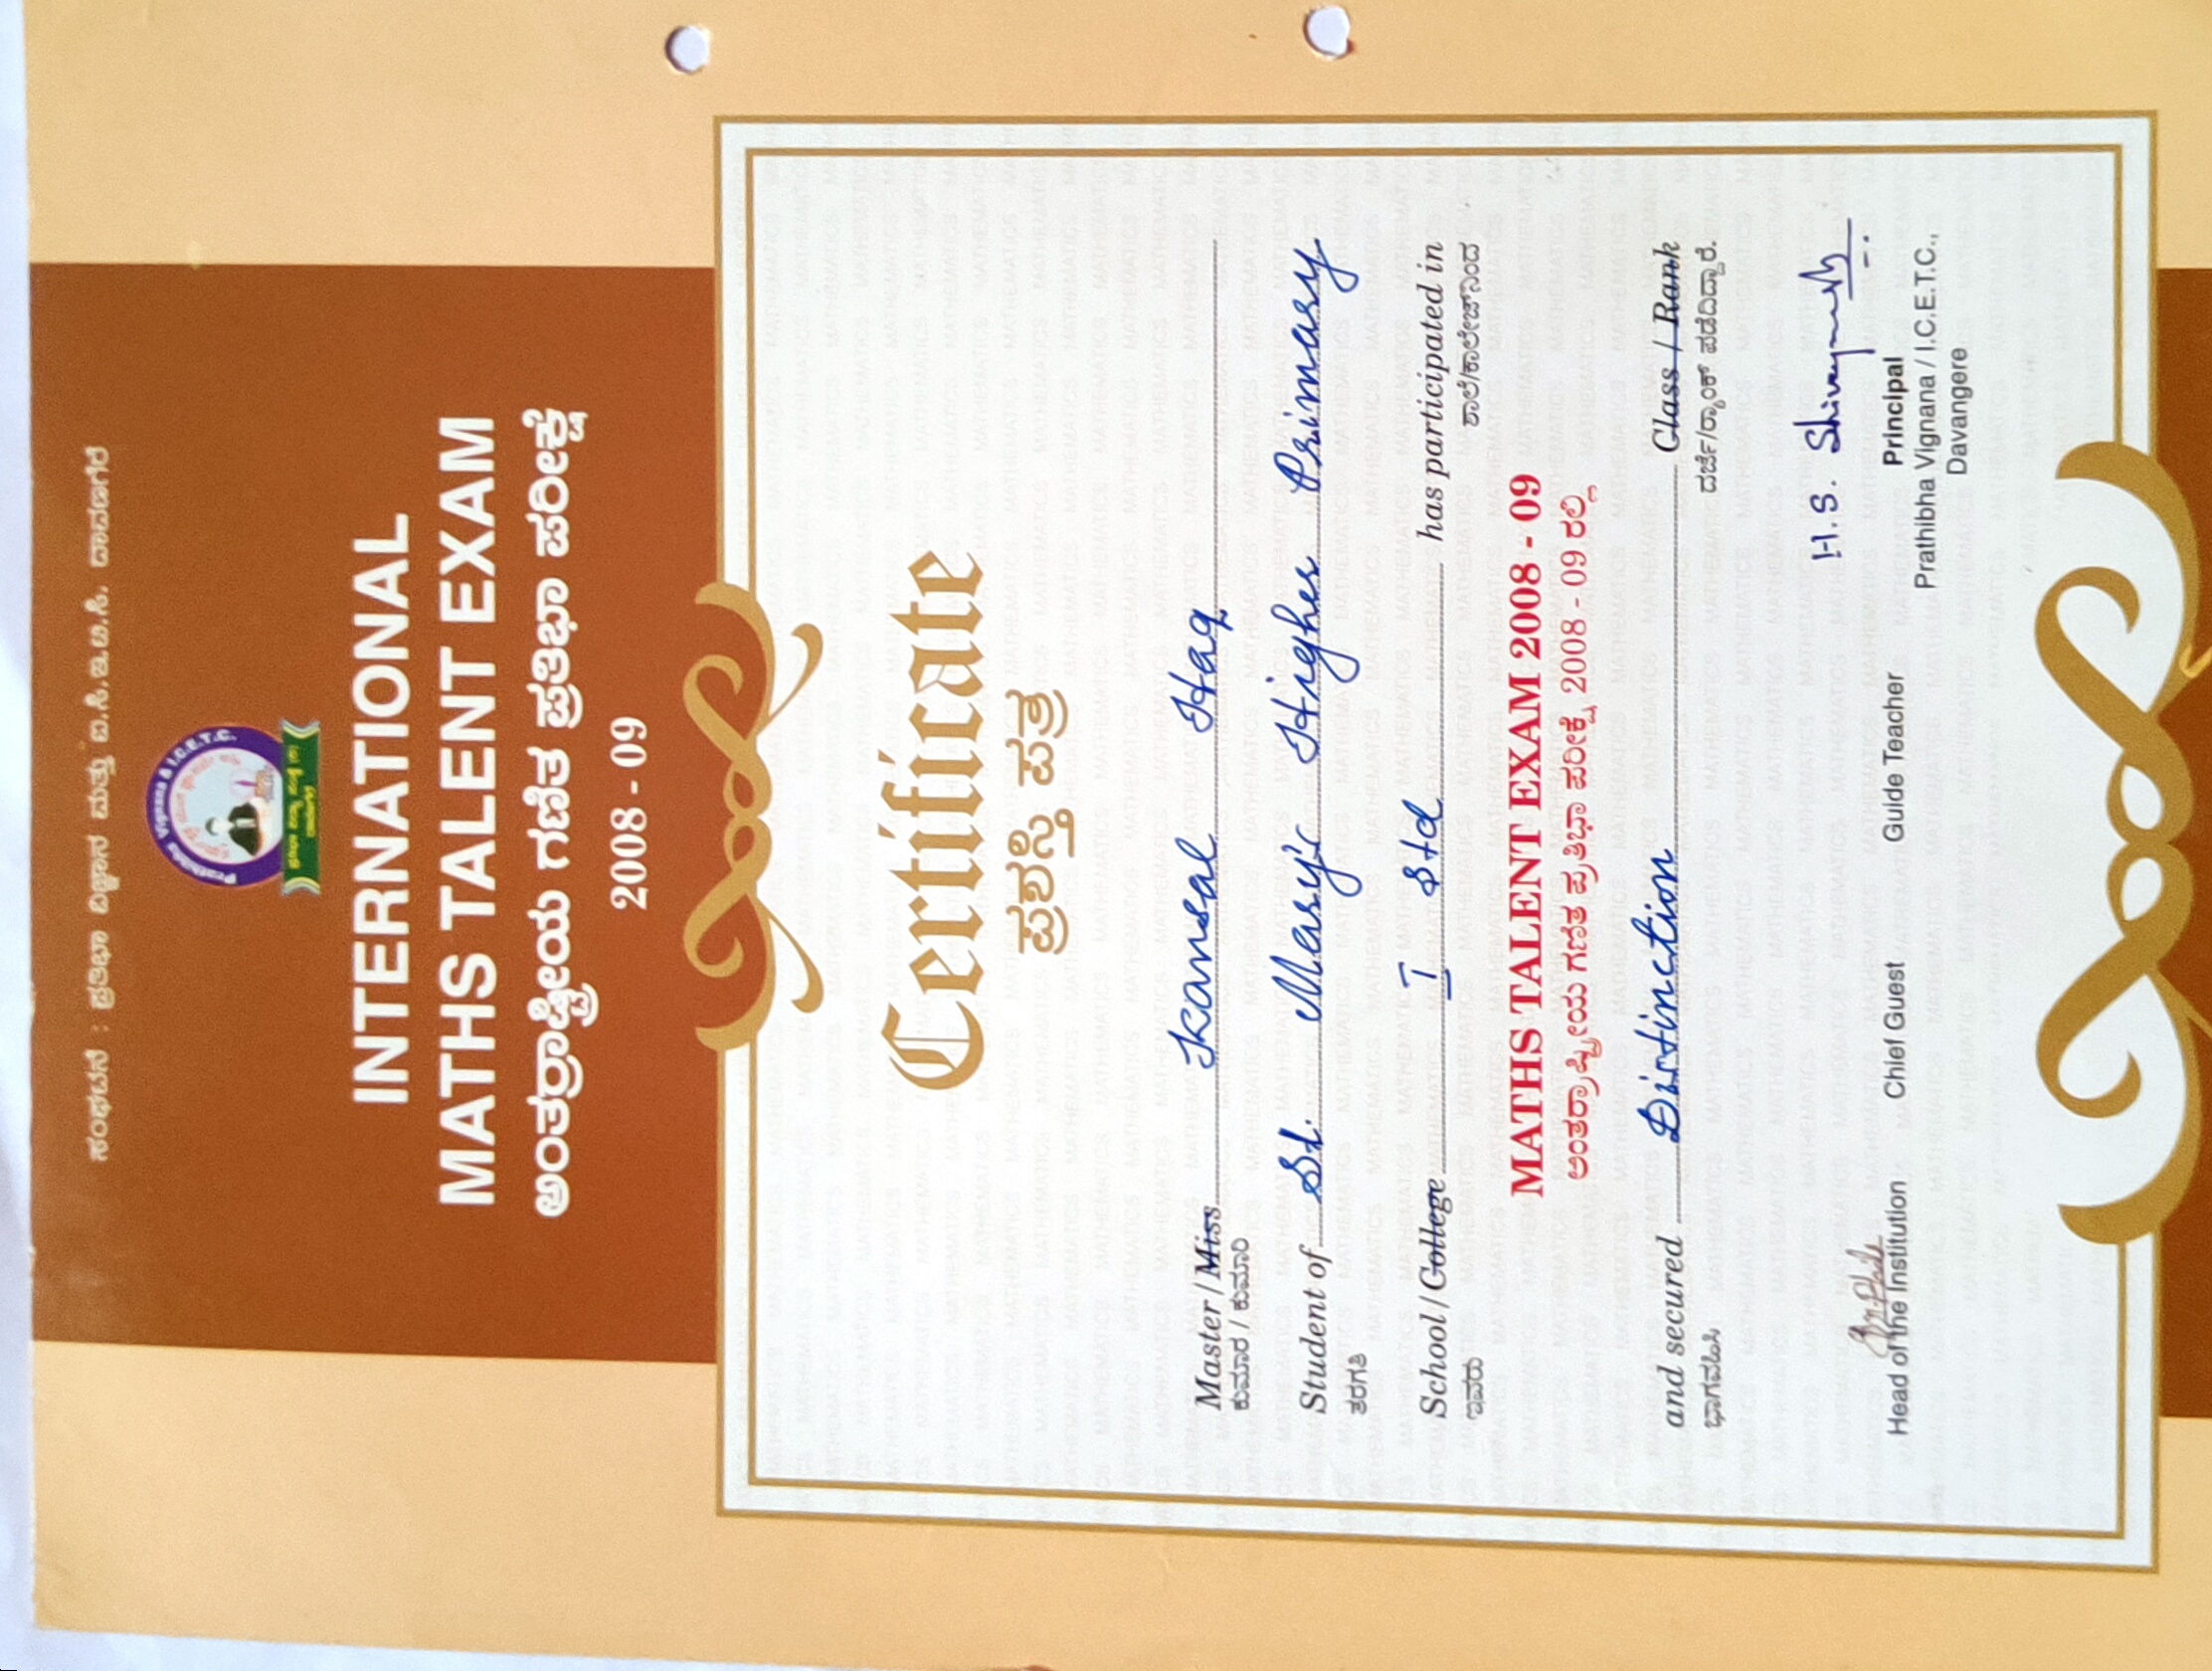 ಸಂಘಟನೆ : ಪ್ರತಿಭಾ ವಿಜ್ಞಾನ ಮತ್ತು ಐ.ಸಿ.ಇ.ಟಿ.ಸಿ. ದಾವಣಗೆರೆ
Prathibha Vignana & I.C.E.T.C.
INTERNATIONAL
MATHS TALENT EXAM
ಅಂತರ್ರಾಷ್ಟ್ರೀಯ ಗಣಿತ ಪ್ರತಿಭಾ ಪರೀಕ್ಷೆ
2008 - 09
Certificate
ಪ್ರಶಸ್ತಿ ಪತ್ರ
Master / Miss Kausal Haq
ಕುಮಾರ / ಕುಮಾರಿ
Student of St. Mary's Higher Primary
ತರಗತಿ
School / College I Std has participated in
ಇವರು ಶಾಲೆ/ಕಾಲೇಜ್‌ನಿಂದ
MATHS TALENT EXAM 2008 - 09
ಅಂತರ್ರಾಷ್ಟ್ರೀಯ ಗಣಿತ ಪ್ರತಿಭಾ ಪರೀಕ್ಷೆ 2008 - 09 ರಲ್ಲಿ
and secured Distinction Class / Rank
ಭಾಗವಹಿಸಿ ದರ್ಜೆ/ರ‍್ಯಾಂಕ್ ಪಡೆದಿದ್ದಾರೆ.
H.S.
Head of the Institution Chief Guest Guide Teacher Principal
Prathibha Vignana / I.C.E.T.C.,
Davangere